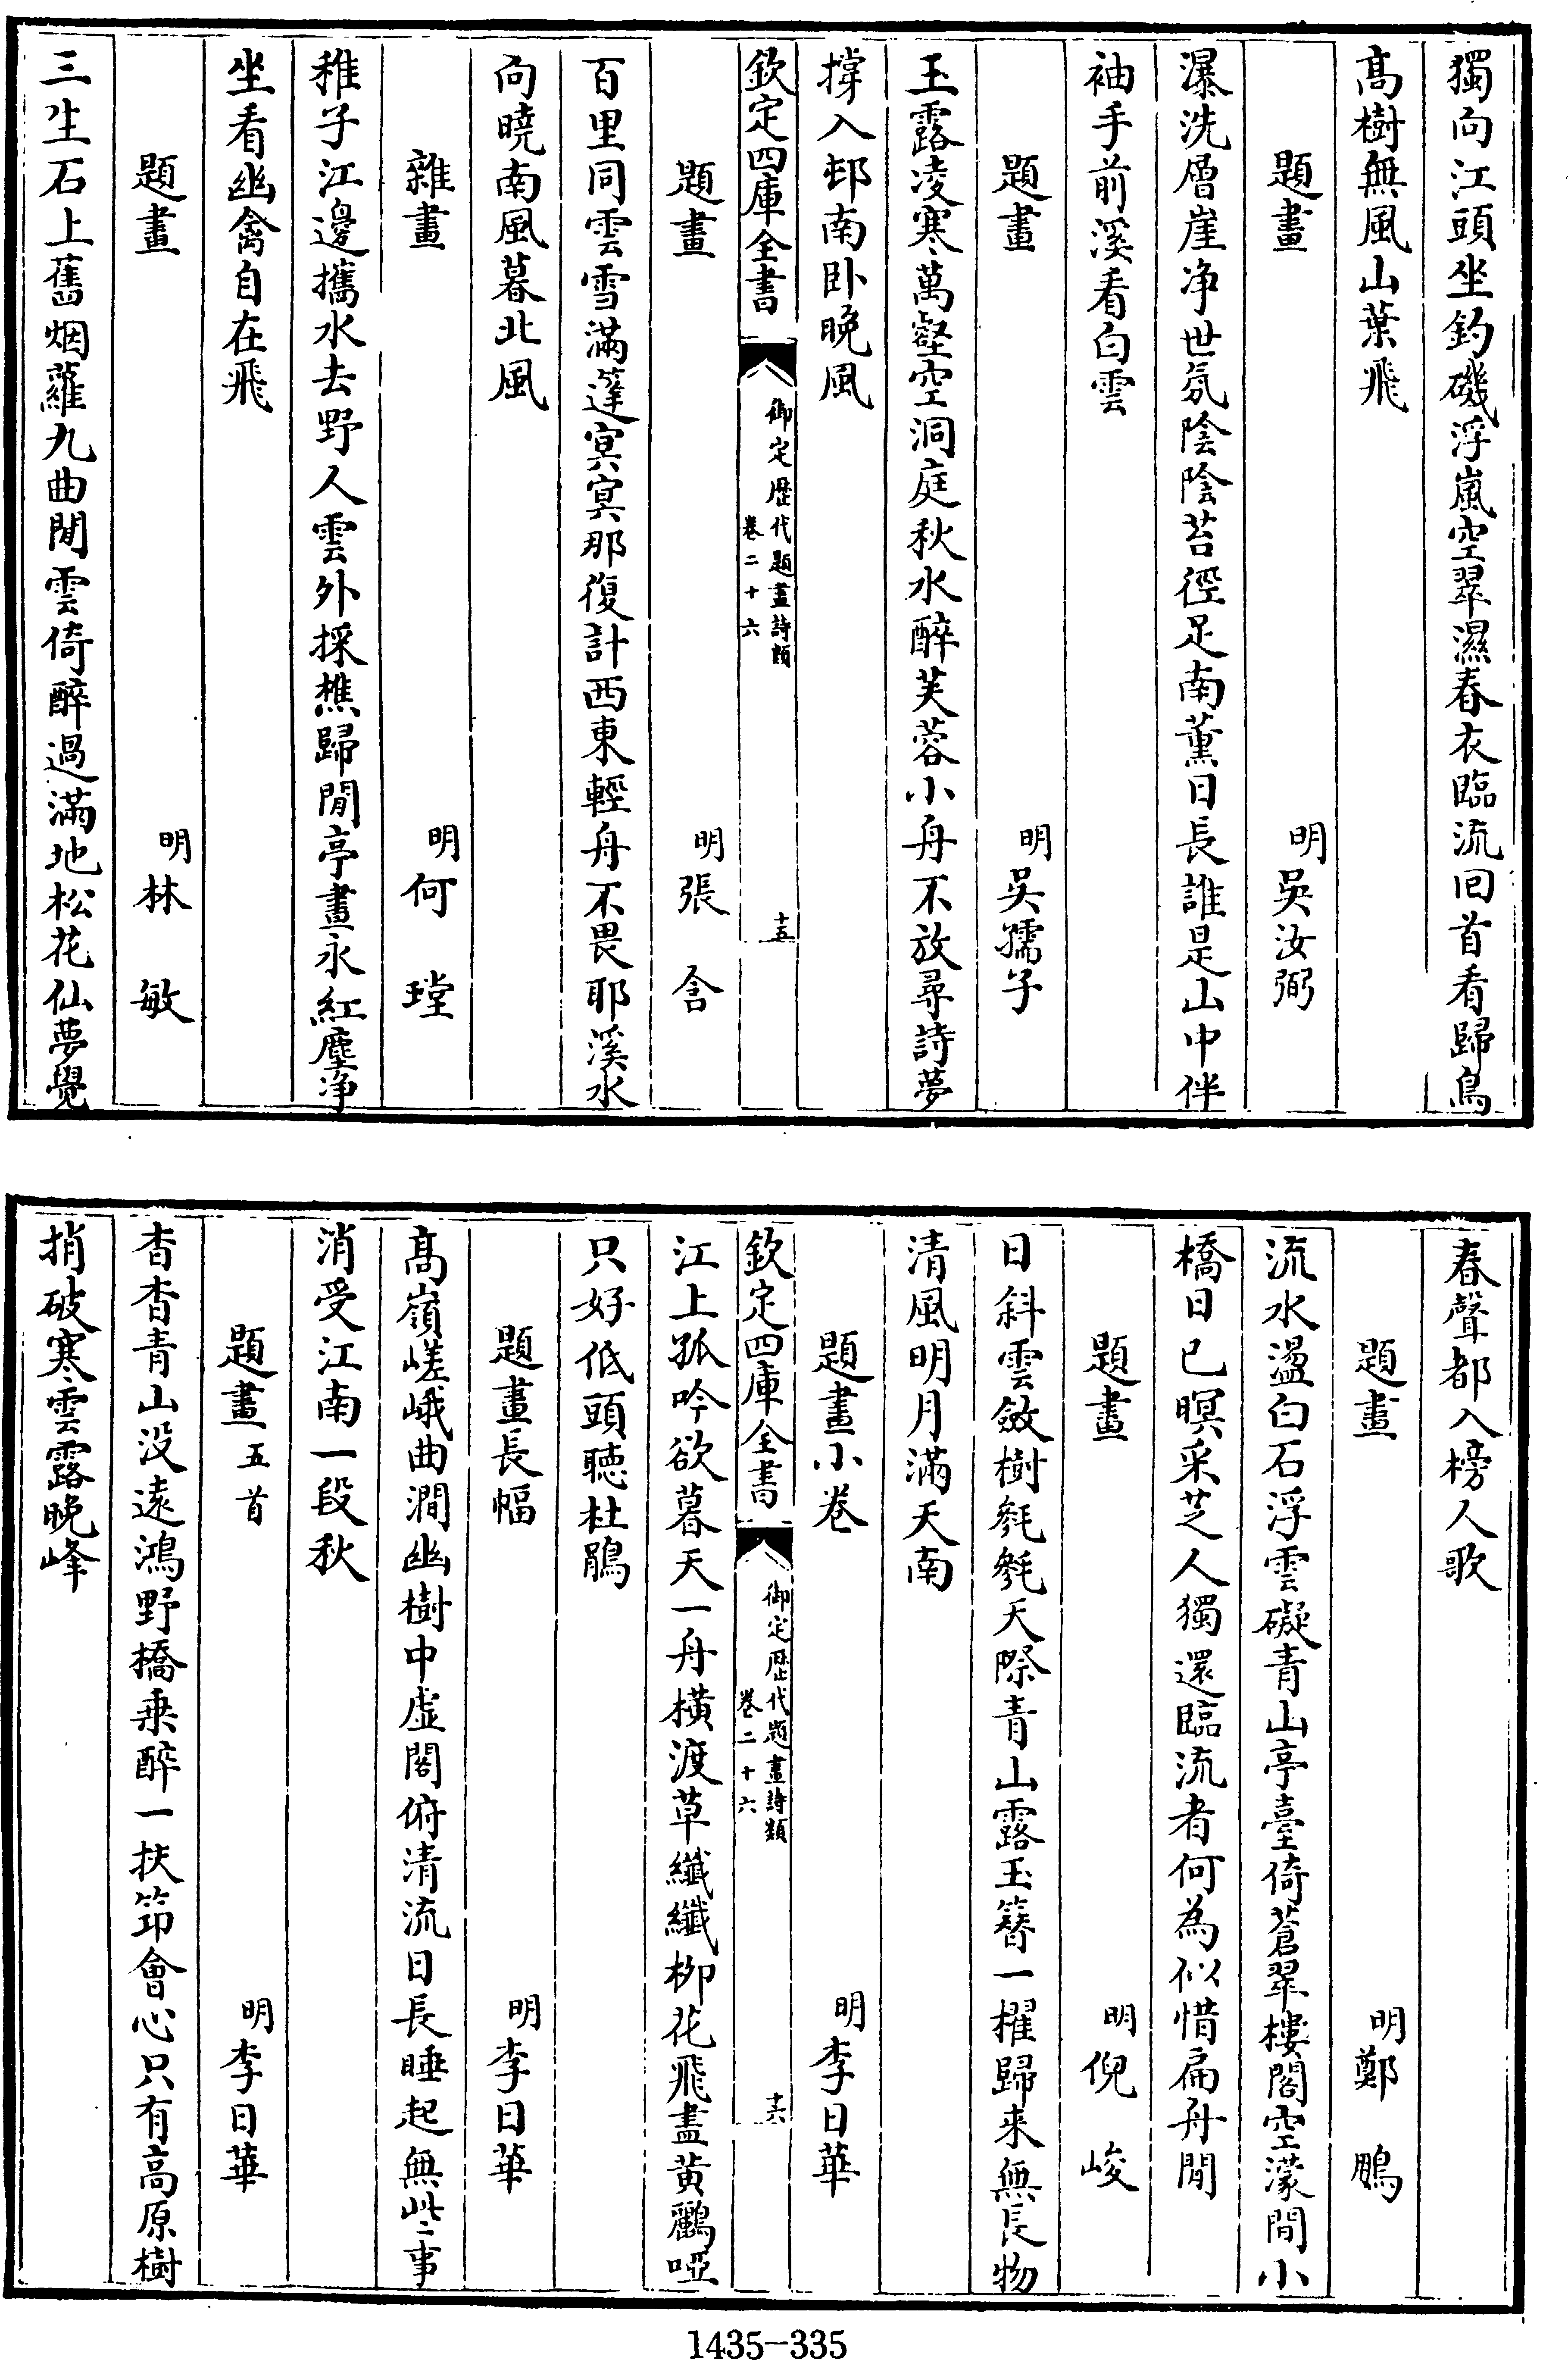 獨向江頭坐釣磯浮嵐空翠濕春衣臨流回首看歸鳥
高樹無風山葉飛
題畫
明吳汝弼
瀑洗層崖净世氛陰陰苔徑足南薰日長誰是山中伴
袖手前溪看白雲
題畫
明吳孺子
玉露凌寒萬壑空洞庭秋水醉芙蓉小舟不放尋詩夢
撐入邨南卧晚風
欽定四庫全書
御定歷代題畫詩類
卷二十六
十五
題畫
明張含
百里同雲雪滿篷冥冥那復計西東輕舟不畏耶溪水
向曉南風暮北風
雜畫
明何瑭
稚子江邊攜水去野人雲外採樵歸閒亭晝永紅塵净
坐看幽禽自在飛
題畫
明林敏
三生石上舊烟蘿九曲閒雲倚醉過滿地松花仙夢覺
春聲都入榜人歌
題畫
明鄭鵬
流水盪白石浮雲礙青山亭臺倚蒼翠樓閣空濛間小
橋日已暝采芝人獨還臨流者何為似惜扁舟閒
題畫
明倪峻
日斜雲斂樹毿毿天際青山露玉簪一櫂歸来無長物
清風明月滿天南
題畫小卷
明李日華
欽定四庫全書
御定歷代題畫詩類
卷二十六
十六
江上孤吟欲暮天一舟橫渡草纖纖柳花飛盡黃鸝啞
只好低頭聽杜鵑
題畫長幅
明李日華
高嶺嵯峨曲澗幽樹中虛閣俯清流日長睡起無些事
消受江南一段秋
題畫五首
明李日華
杳杳青山没遠鴻野橋乗醉一扶筇會心只有高原樹
捎破寒雲露晚峰
1435-335